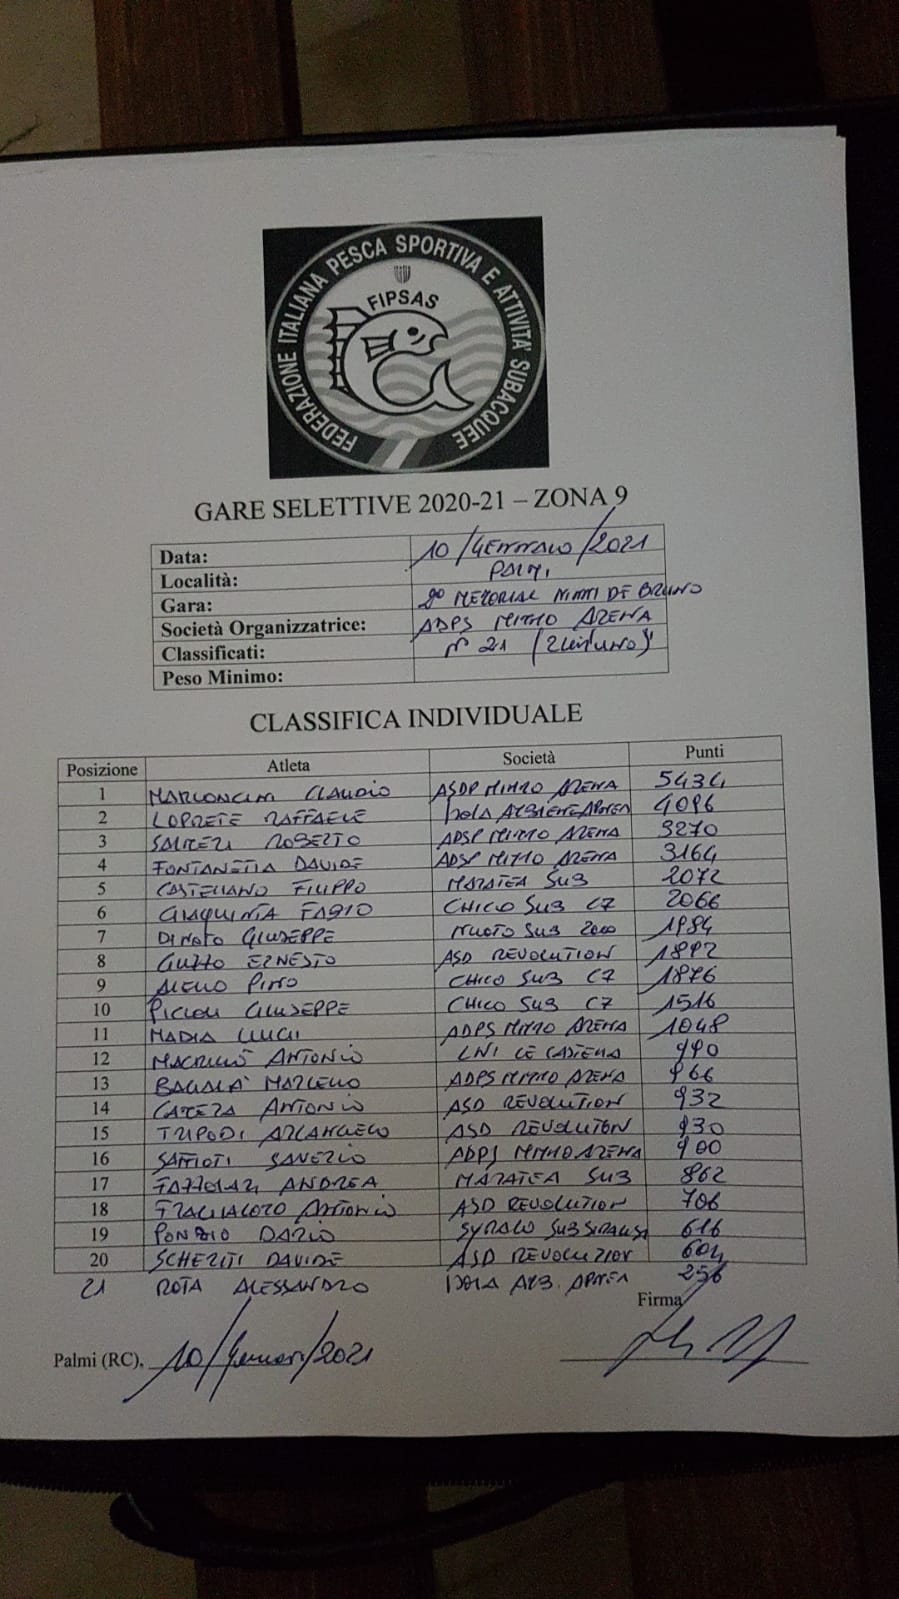 FEDERAZIONE ITALIANA PESCA SPORTIVA E ATTIVITA' SUBACQUEE
FIPSAS
GARE SELETTIVE 2020-21 – ZONA 9
Data: 10/GENNAIO/2021
Località: PALMI
Gara: 2° MEMORIAL NINTI DE BRUNO
Società Organizzatrice: ADPS MIMMO ARENA
Classificati: n° 21 (
Peso Minimo:
CLASSIFICA INDIVIDUALE
Posizione Atleta Società Punti
1 CLAUDIO ASDP MIMMO ARENA 5434
2 LOPRETE RAFFAELE 4096
3 ROBERTO ADSP MIMMO ARENA 3270
4 DAVIDE ADSP MIMMO ARENA 3164
5 CASTELLANO FILIPPO MARATEA SUB 2072
6 GIAQUINTA FABIO CHICO SUB C7 2066
7 DINATO GIUSEPPE NUOTO SUB 2000 1984
8 ERNESTO ASD REVOLUTION 1892
9 PINO CHICO SUB C7 1876
10 GIUSEPPE CHICO SUB C7 1516
11 MADIA LUIGI ADPS MIMMO ARENA 1048
12 ANTONIO LNI 990
13 BAGALA' MARCELLO ADPS MIMMO ARENA 966
14 ANTONIO ASD REVOLUTION 932
15 TRIPODI ARCANGELO ASD REVOLUTION 930
16 SAFFIOTI SAVERIO ADPS MIMMO ARENA 900
17 ANDREA MARATEA SUB 862
18 ANTONIO ASD REVOLUTION 706
19 DARIO 616
20 DAVIDE ASD REVOLUTION 604
21 ROTA ALESSANDRO APNEA 256
Firma
Palmi (RC), 10/Gennaio/2021